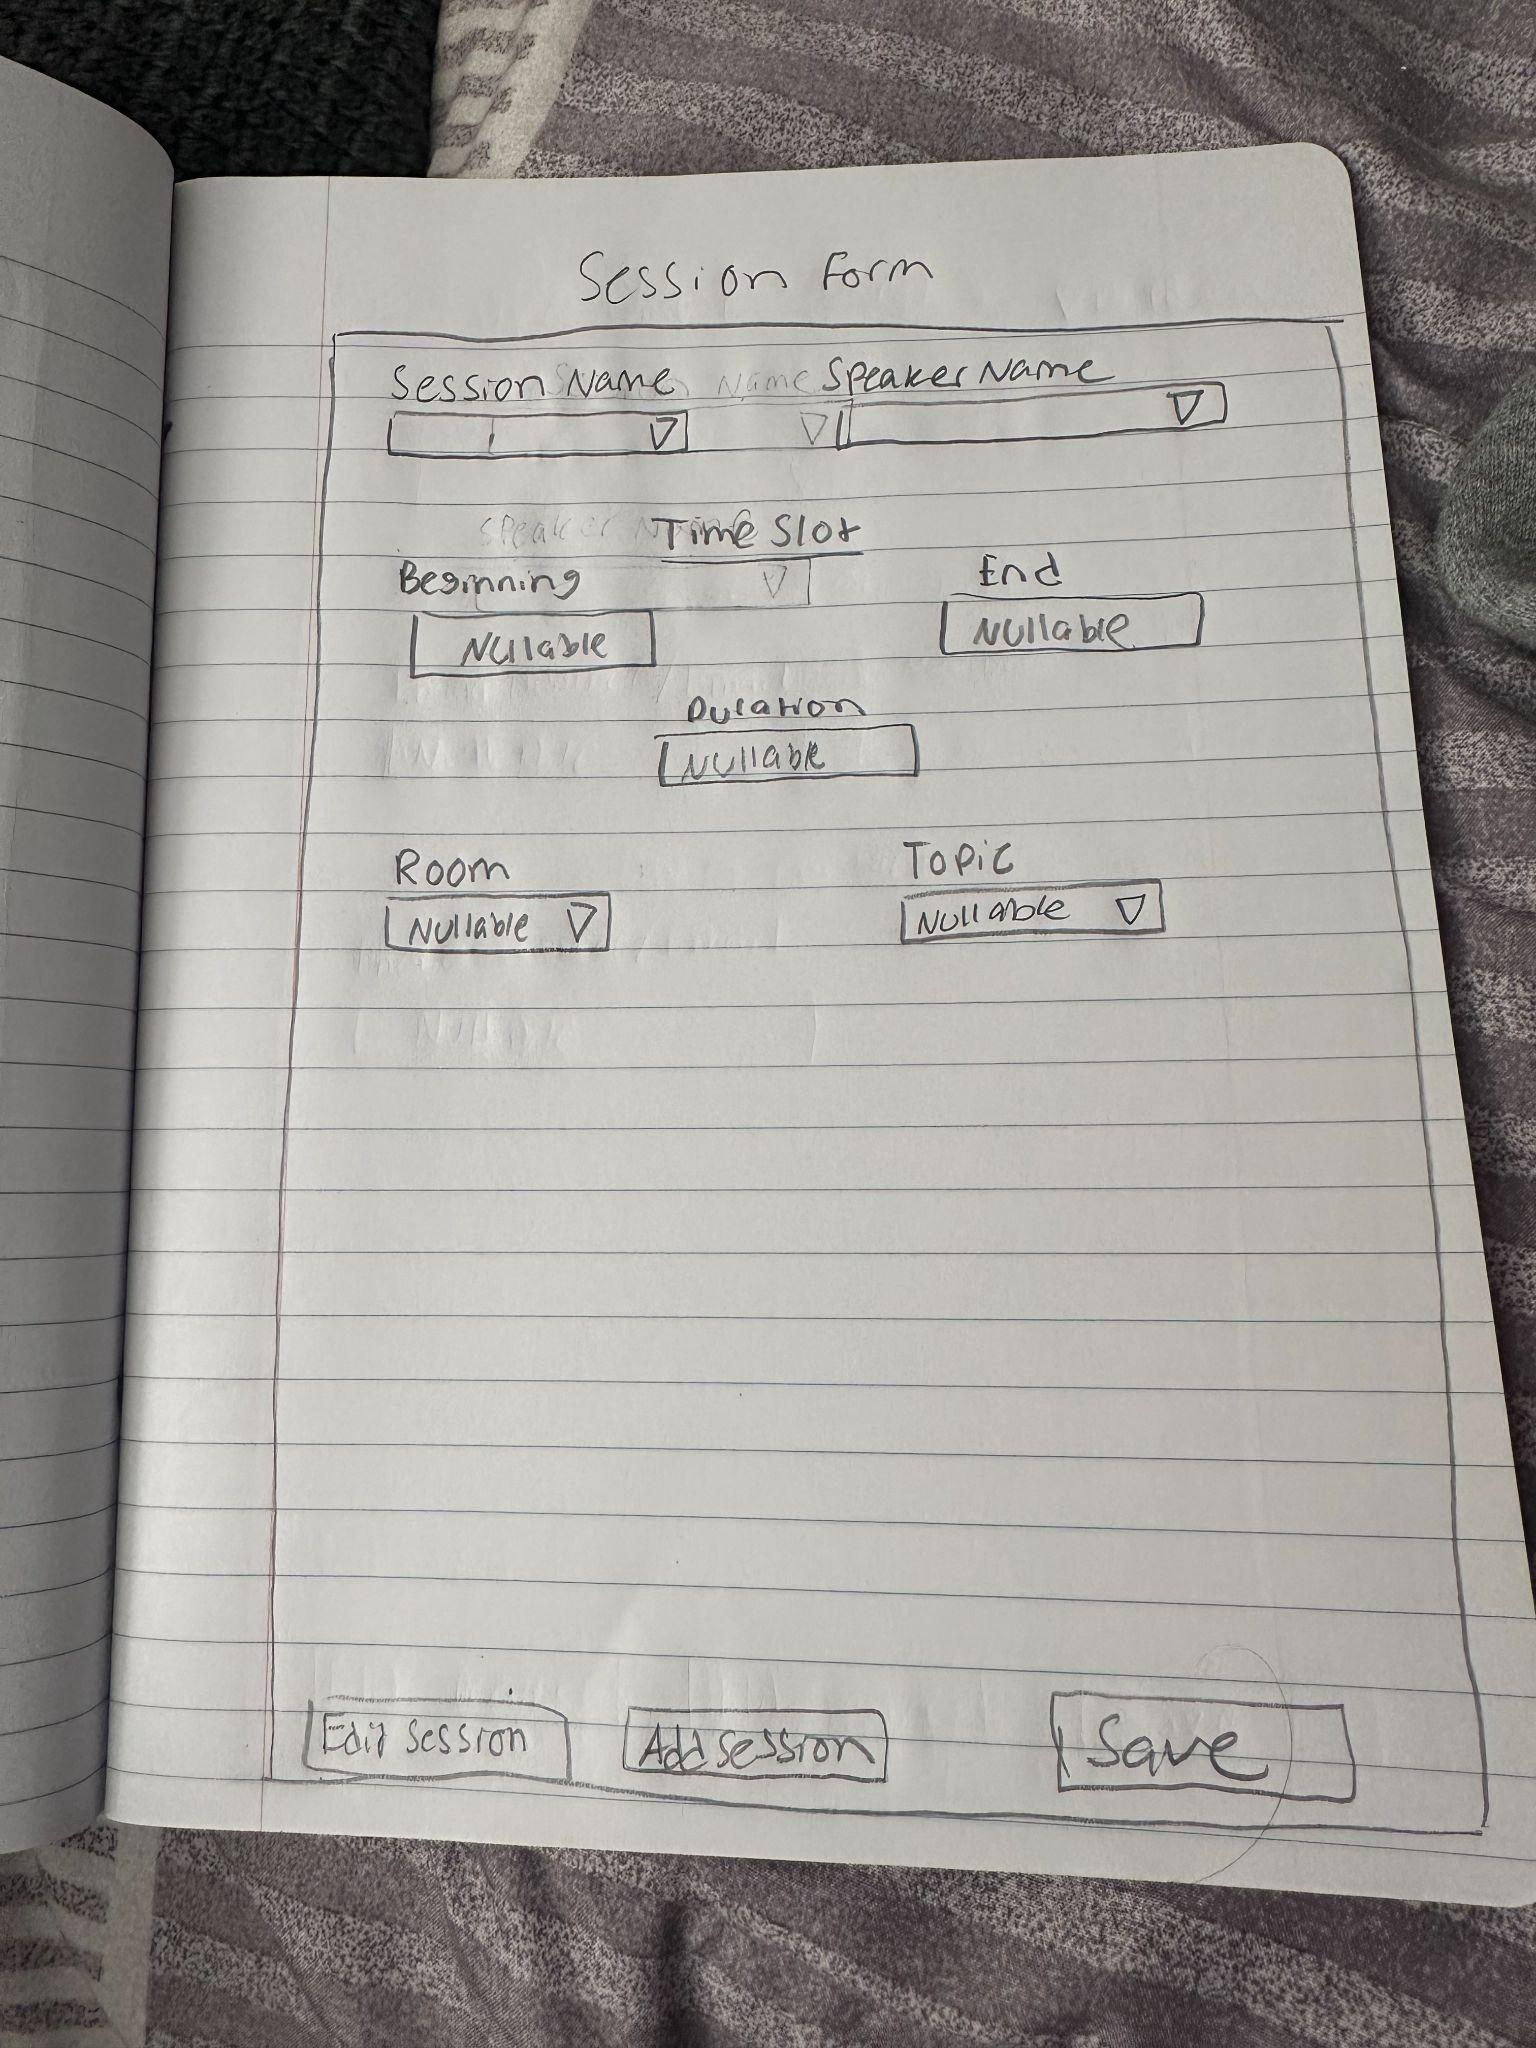 Session Form
Session Name Name Speaker Name
Speaker Time Slot
Beginning End
Nullable Nullable
Duration
Nullable
Room Topic
Nullable Nullable
Edit Session Add Session Save